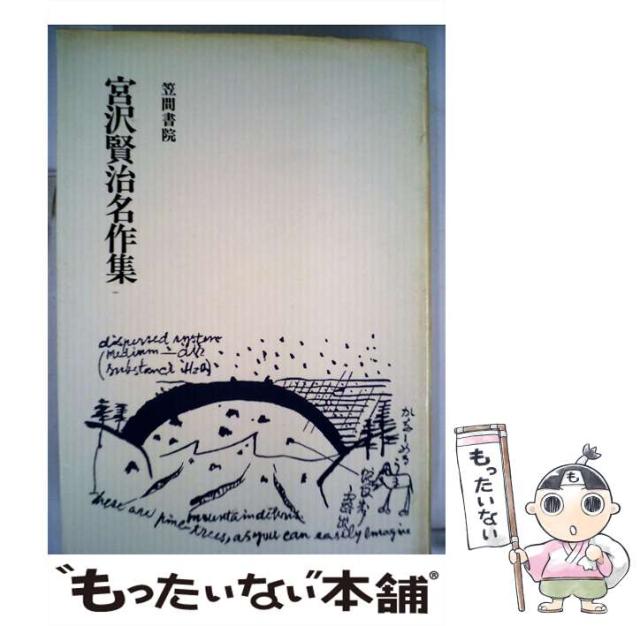 笠間書院
宮沢賢治名作集
dispersed system
(medium — air
(substance H2O)
there are pine-trees, as you can easily imagine
も
もったいない
"もったいない"本舗®